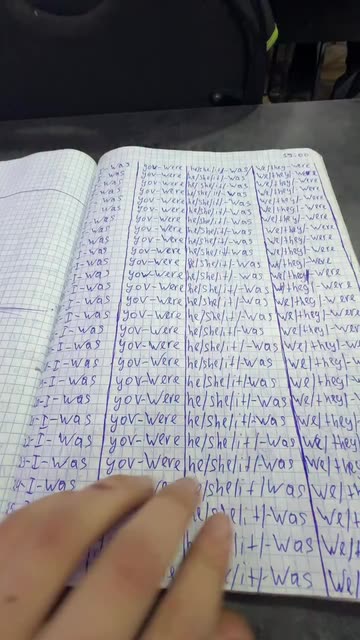 -was you-were he/she/it/-was we/they/-were
-was you-were he/she/it/-was we/they/-were
-was you-were he/she/it/-was we/they/-were
-was you-were he/she/it/-was we/they/-were
-was you-were he/she/it/-was we/they/-were
-was you-were he/she/it/-was we/they/-were
-was you-were he/she/it/-was we/they/-were
-was you-were he/she/it/-was we/they/-were
I-was you-were he/she/it/-was we/they/-were
I-was you-were he/she/it/-was we/they/-were
I-was you-were he/she/it/-was we/they/-were
I-was you-were he/she/it/-was we/they/-were
I-was you-were he/she/it/-was we/they/-were
I-was you-were he/she/it/-was we/they/-were
I-was you-were he/she/it/-was we/they/-were
I-was you-were he/she/it/-was we/they/-were
I-was you-were he/she/it/-was we/they/-
I-was you-were he/she/it/-was we/they/-
I-was you-were he/she/it/-was we/they/-
I-was you-were he/she/it/-was we/they
I-was you-were he/she/it/-was we/the
I-was you-were he/she/it/-was we/the
I-was /she/it/-was we/th
/she/it/-was we/t
/she/it/-was we/
/she/it/-was we/